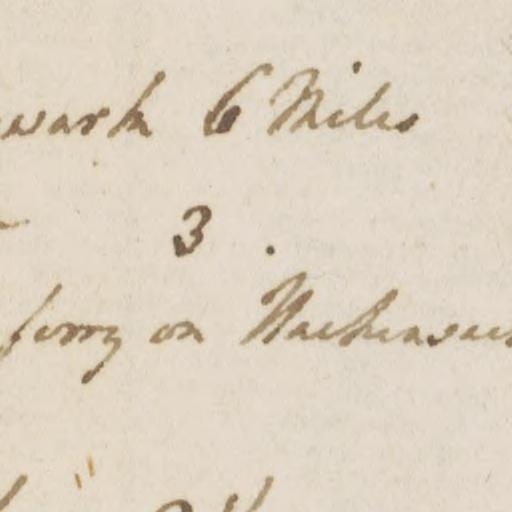 wark 6 Miles
3 .
ferry on Hackensac